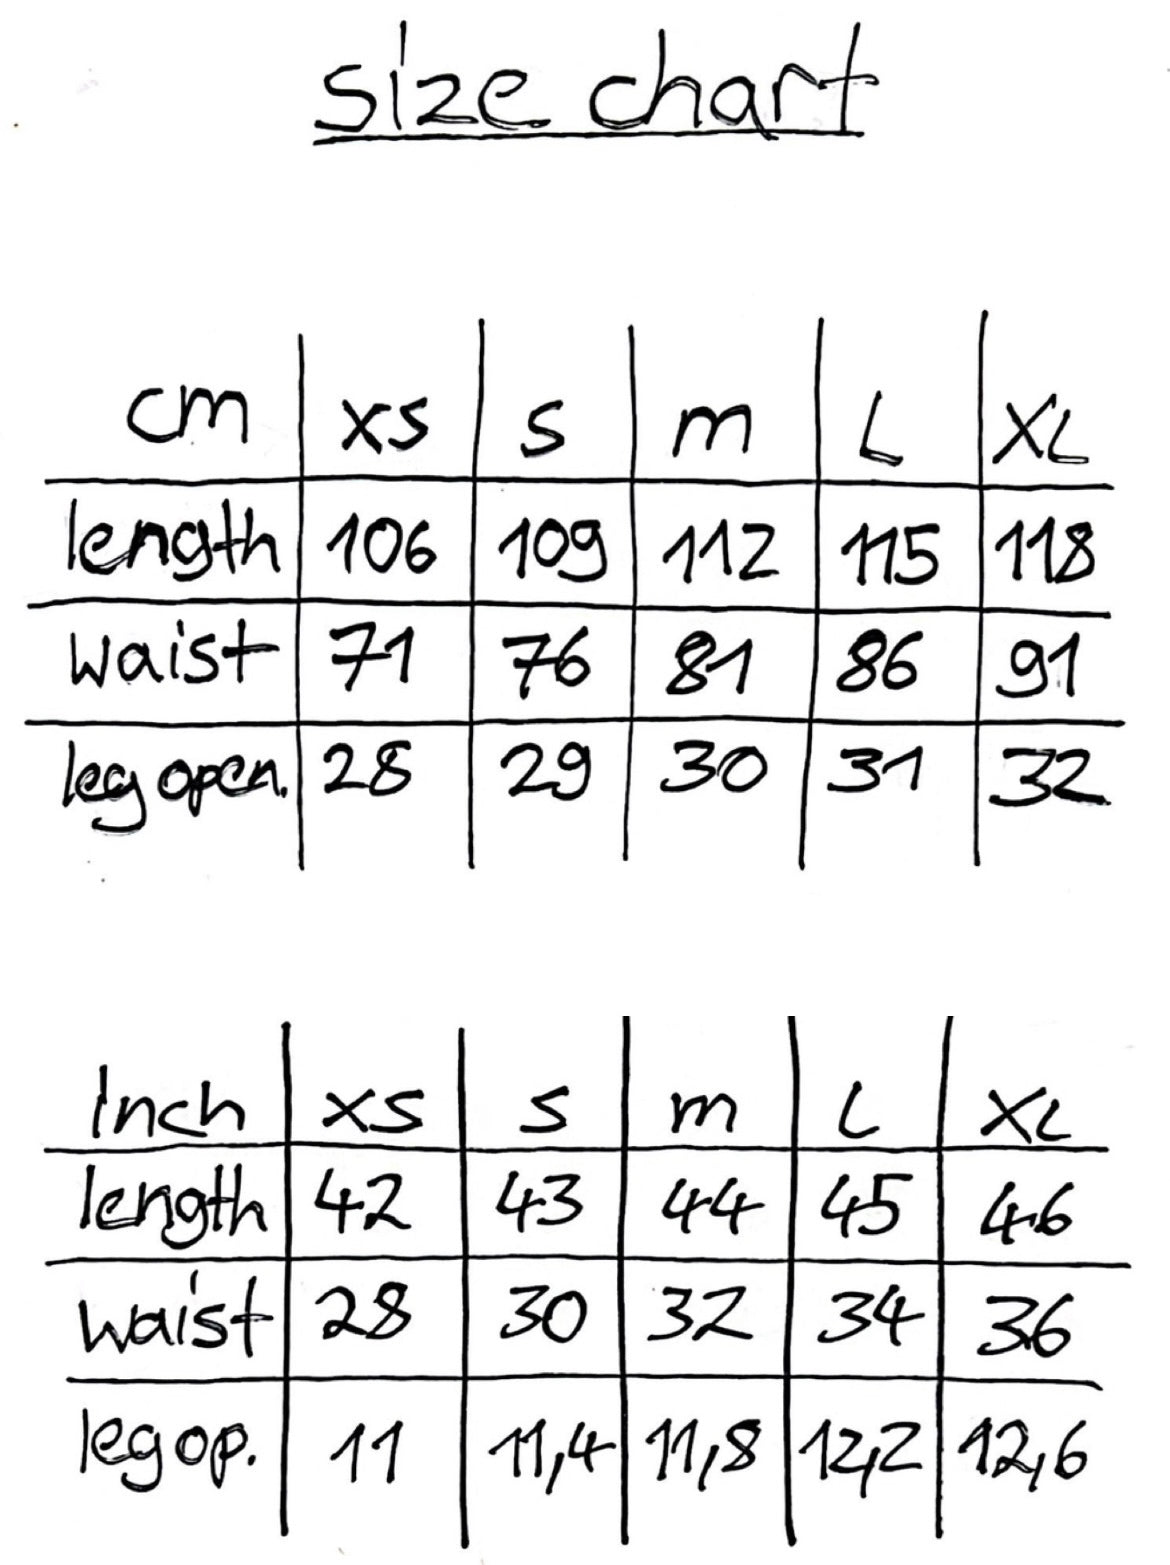 size chart
cm XS S M L XL
length 106 109 112 115 118
waist 71 76 81 86 91
leg open. 28 29 30 31 32
Inch XS S M L XL
length 42 43 44 45 46
waist 28 30 32 34 36
leg op. 11 11,4 11,8 12,2 12,6